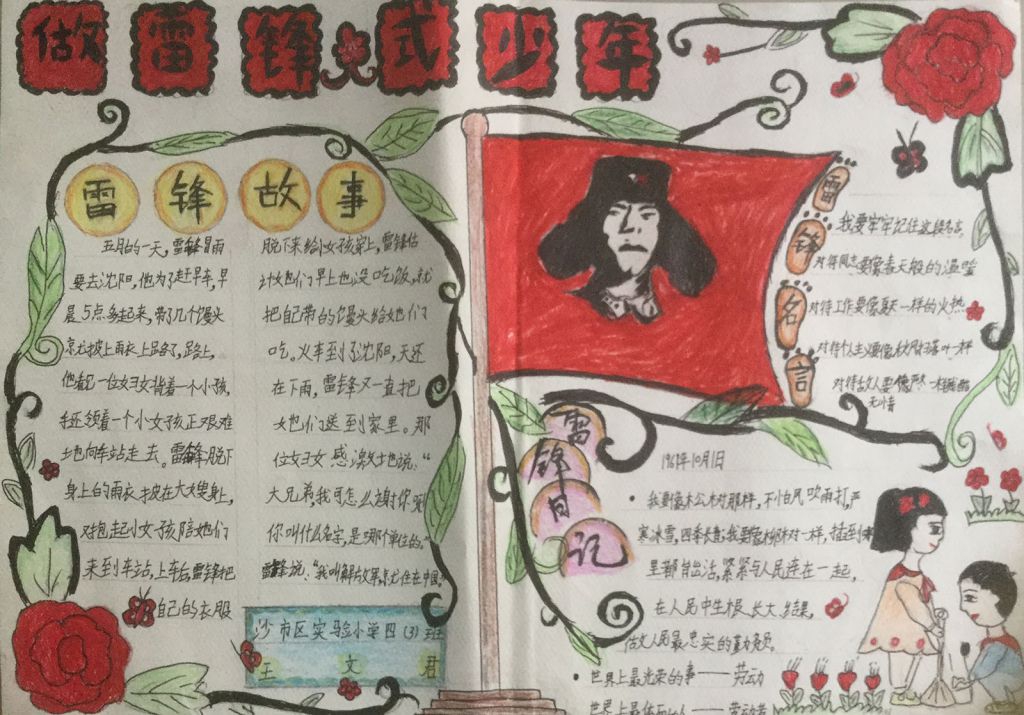 做雷锋式少年
雷锋故事
五月的一天,雷锋冒雨
要去沈阳,他为了赶早车,早
晨5点多起来,带了几个馒头
就披上雨衣上路了,路上,
他看见一位妇女背着一个小孩,
手还领着一个小女孩正艰难
地向车站走去。雷锋脱下
身上的雨衣披在大嫂身上,
又抱起小女孩陪她们
来到车站,上车后,雷锋把
自己的衣服
脱下来给小女孩穿上,雷锋估
计她们早上也没吃饭,就
把自己带的馒头给她们
吃。火车到了沈阳,天还
在下雨,雷锋又一直把
她们送到家里。那
位妇女感激地说:“
大兄弟,我可怎么谢你呀
你叫什么名字,是哪个单位的。”
雷锋说:“我叫解放军,就住在中国
沙市区实验小学四(3)班
王文君
雷锋名言
我要牢牢记住这段名言,
对待同志要像春天般的温暖
对待工作要像夏天一样的火热
对待个人主义要像秋风扫落叶一样
对待敌人要像严冬一样残酷
无情
雷锋日记
1961年10月1日
我要像松树那样,不怕风吹雨打,严
寒冰雪,四季长青;我要像杨柳树一样,插到哪
里都有生活,紧紧与人民连在一起,
在人民中生根、长大、结果,
做人民最忠实的勤务员。
世界上最光荣的事——劳动
世界上最体面的人——劳动者